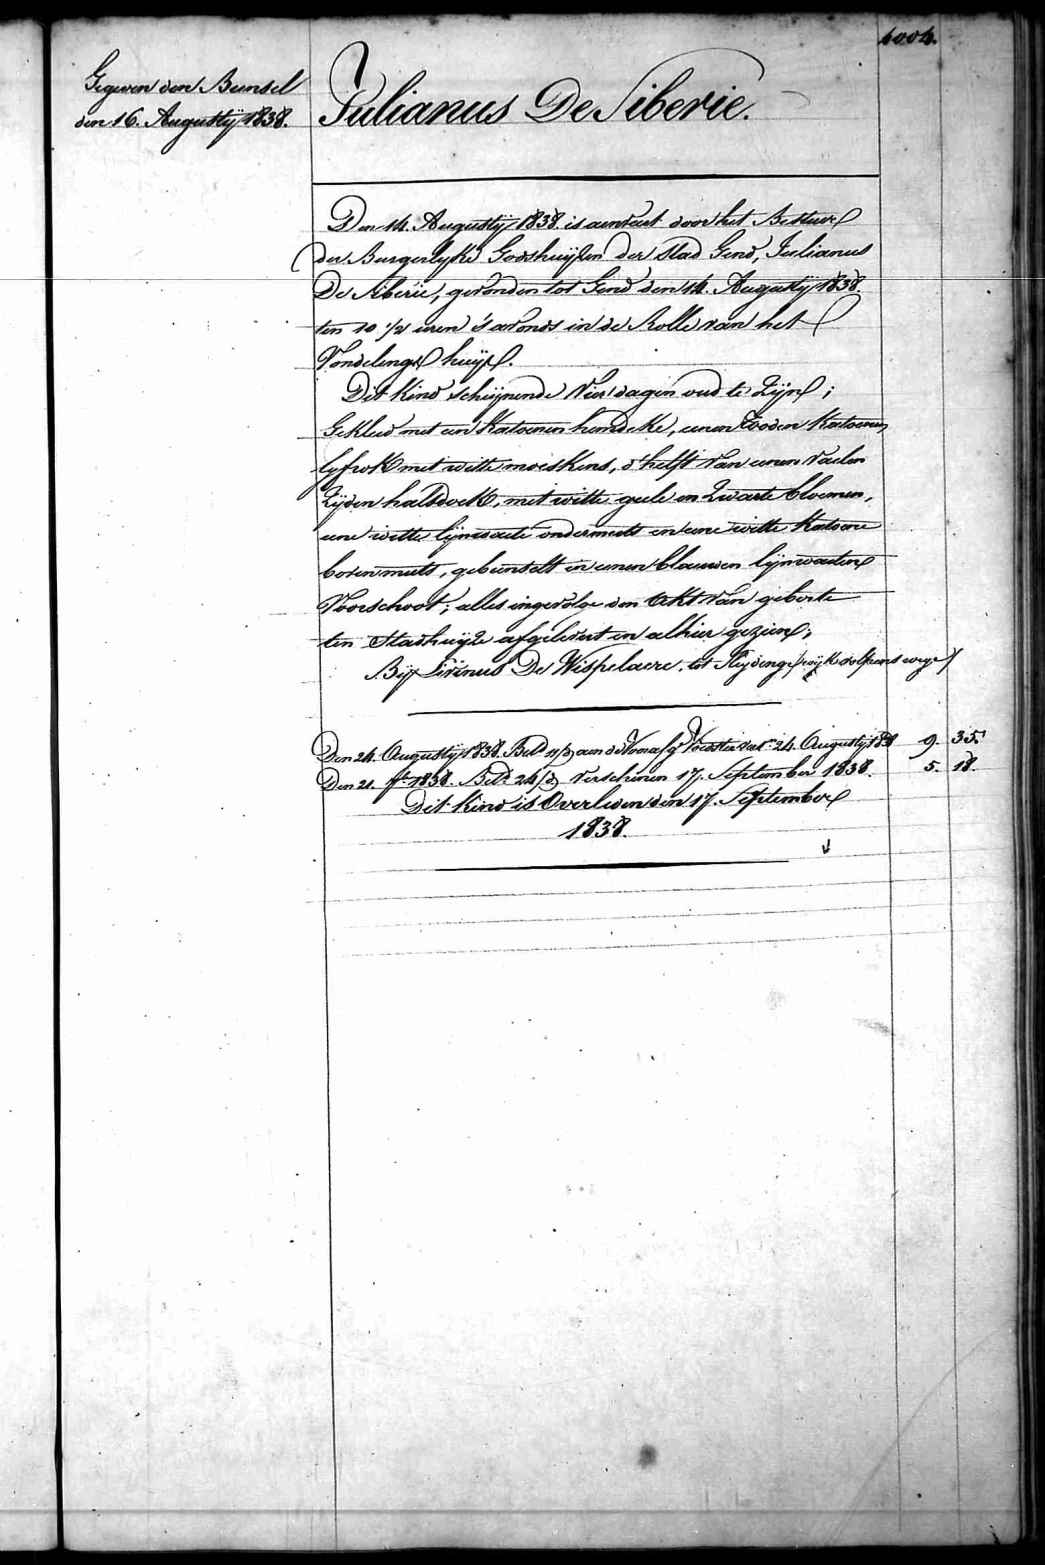 4004.
Gegeven den Bunsel
den 16. Augustij 1838.
Julianus De Siberie.
Den 14. Augustij 1838. is aenveert door het Bestuer
der Burgerlyke Godshuijzen der Stad Gend, Julianus
De Siberie, gevonden tot Gend den 14. Augustij 1838.
ten 10 1/2 uren 's avonds in de Rolle van het
Vondelings huijs.
Dit kind schijnende Vier dagen oud te Zijn;
Gekleed met een Katoenen hemdeke, eenen rooden Katoenen
lyfrok met witte moeskens, d'helft van eenen vaelen
Zijden halsdoek, met witte geele en Zwarte bloemen,
eene witte lijnwaete ondermuts en eene witte Katoene
bovenmuts, gebunselt in eenen blauwen lijnwaeten
Voorschoot; alles ingevolge den Akt van geborte
ten Stadhuijze afgelevert en alhier gezien;
Bij Livinus De Wispelaere, tot Sleydinge (wijk
Den 24. Augustij 1838. Beld 11/d aen de Voorster dat.m 24. Augustij 1838 9. 35.
Den 21. 7.bre 1838. Beld 24/d Verschenen 17. September 1838. 5. 18.
Dit kind is Overleden den 17. September
1838.